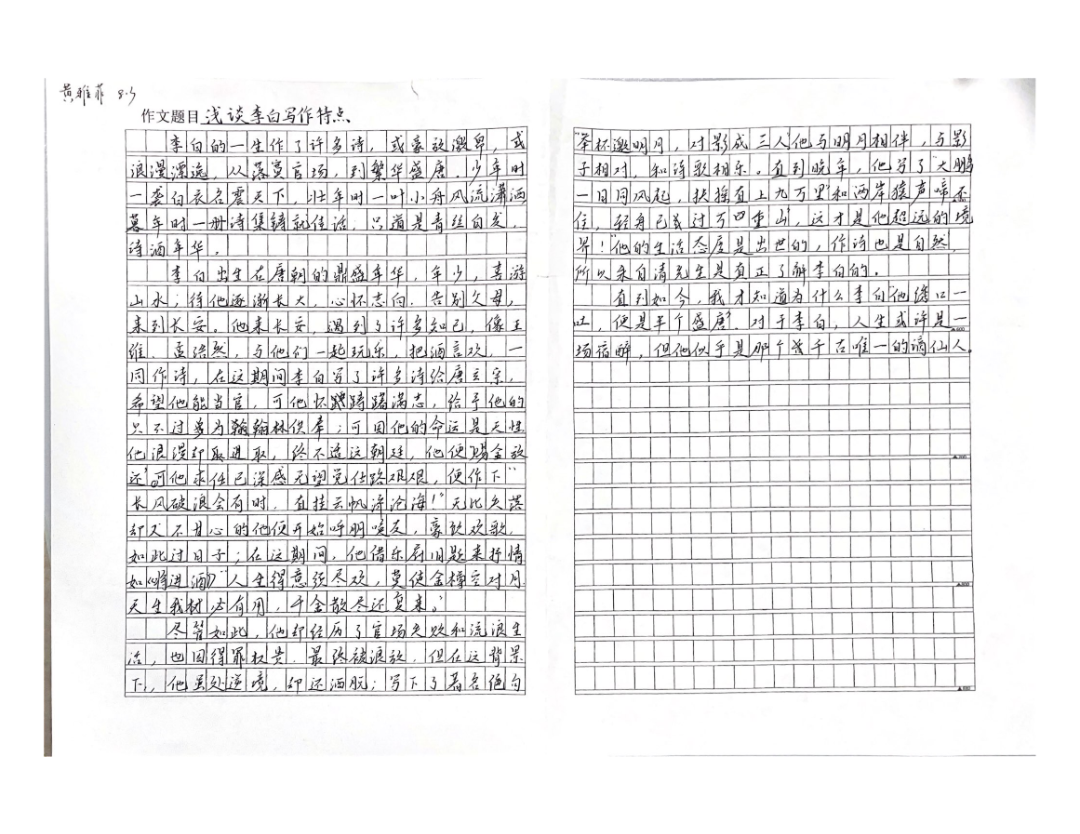 黄雅菲 8.3
作文题目 浅谈李白写作特点
李白的一生作了许多诗，或豪放激昂，或
浪漫漂逸，从落寞官场，到繁华盛唐。少年时
一袭白衣名震天下，壮年时一叶小舟风流潇洒
暮年时一册诗集铸就佳话；只道是青丝白发，
诗酒年华。
李白出生在唐朝的鼎盛年华，年少，喜游
山水；待他逐渐长大，心怀志向，告别父母，
来到长安。他来长安，遇到了许多知己，像王
维、孟浩然，与他们一起玩乐，把酒言欢，一
同作诗，在这期间李白写了许多诗给唐玄宗，
希望他能当官，可他怀踌躇满志，给予他的
只不过为翰林供奉；可因他的命运是天性
他浪漫却取进取，终不适这朝廷，他便赐金放
还，可他求任已深感无望觉仕路艰艰，便作下"
长风破浪会有时，直挂云帆济沧海！"无比失落
却又不甘心的他便开始呼朋唤友，豪饮欢歌，
如此过日子；在这期间，他借乐府旧题来抒情
如《将进酒》"人生得意须尽欢，莫使金樽空对月
天生我材必有用，千金散尽还复来。"
尽管如此，他却经历了官场失败和流浪生
活，也因得罪权贵，最终被流放，但在这背景
下，他虽处逆境，却还洒脱；写下了著名绝句
"举杯邀明月，对影成三人"他与明月相伴，与影
子相对，和诗歌相乐。直到晚年，他写了"大鹏
一日同风起，扶摇直上九万里"和两岸猿声啼不
住，轻舟已过万重山"，这才是他超远的境
界！"他的生活态度是出世的，作诗也是自然，
所以朱自清先生是真正了解李白的。
直到如今，我才知道为什么李白"他绣口一
吐，便是半个盛唐"，对于李白，人生或许是一
场宿醉，但他似乎是那个千古唯一的谪仙人。